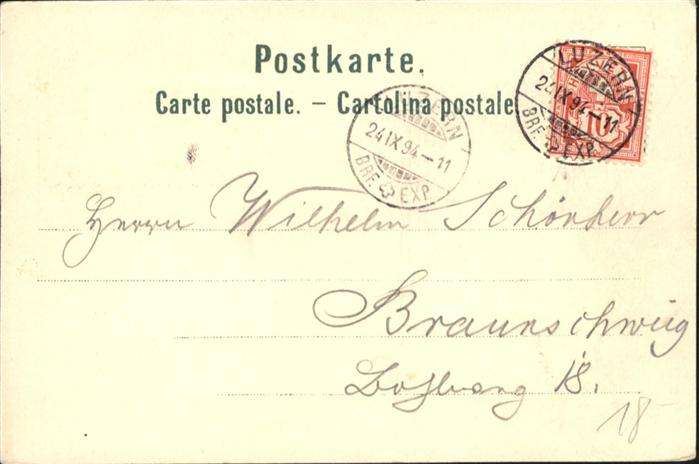 Postkarte.
Carte postale. – Cartolina postale
LUZERN
24 IX 94–11
BRF. EXP.
LUZERN
24 IX 94–11
BRF. EXP.
10
Herrn Wilhelm Schönherr
Braunschweig
18.
18-